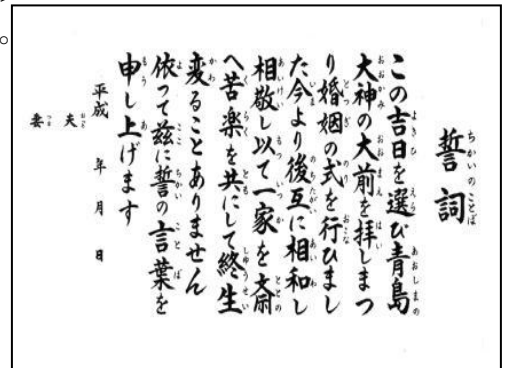 誓詞
この吉日を選び青島
大神の大前を拝しまつ
り婚姻の式を行ひまし
た今より後互に相和し
相敬し以て一家を斎
へ苦楽を共にして終生
変ることありません
依って茲に誓の言葉を
申し上げます
平成 年 月 日
夫
妻